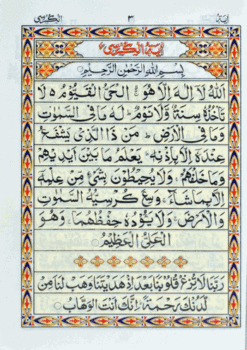 آیة ٣ الکرسی
آیة الکرسی
بِسْمِ اللّٰهِ الرَّحْمٰنِ الرَّحِیْمِ
اَللّٰهُ لَاۤ اِلٰهَ اِلَّا هُوَ ۚ اَلْحَیُّ الْقَیُّوْمُ ۚ لَا
تَاْخُذُهٗ سِنَةٌ وَّلَا نَوْمٌ ؕ لَهٗ مَا فِی السَّمٰوٰتِ
وَمَا فِی الْاَرْضِ ؕ مَنْ ذَا الَّذِیْ یَشْفَعُ
عِنْدَهٗۤ اِلَّا بِاِذْنِهٖ ؕ یَعْلَمُ مَا بَیْنَ اَیْدِیْهِمْ
وَمَا خَلْفَهُمْ ۚ وَلَا یُحِیْطُوْنَ بِشَیْءٍ مِّنْ عِلْمِهٖۤ
اِلَّا بِمَا شَآءَ ۚ وَسِعَ كُرْسِیُّهُ السَّمٰوٰتِ
وَالْاَرْضَ ۚ وَلَا یَئُوْدُهٗ حِفْظُهُمَا ۚ وَهُوَ
الْعَلِیُّ الْعَظِیْمُ
رَبَّنَا لَا تُزِغْ قُلُوْبَنَا بَعْدَ اِذْ هَدَیْتَنَا وَهَبْ لَنَا مِنْ
لَّدُنْكَ رَحْمَةً ۚ اِنَّكَ اَنْتَ الْوَهَّابُ